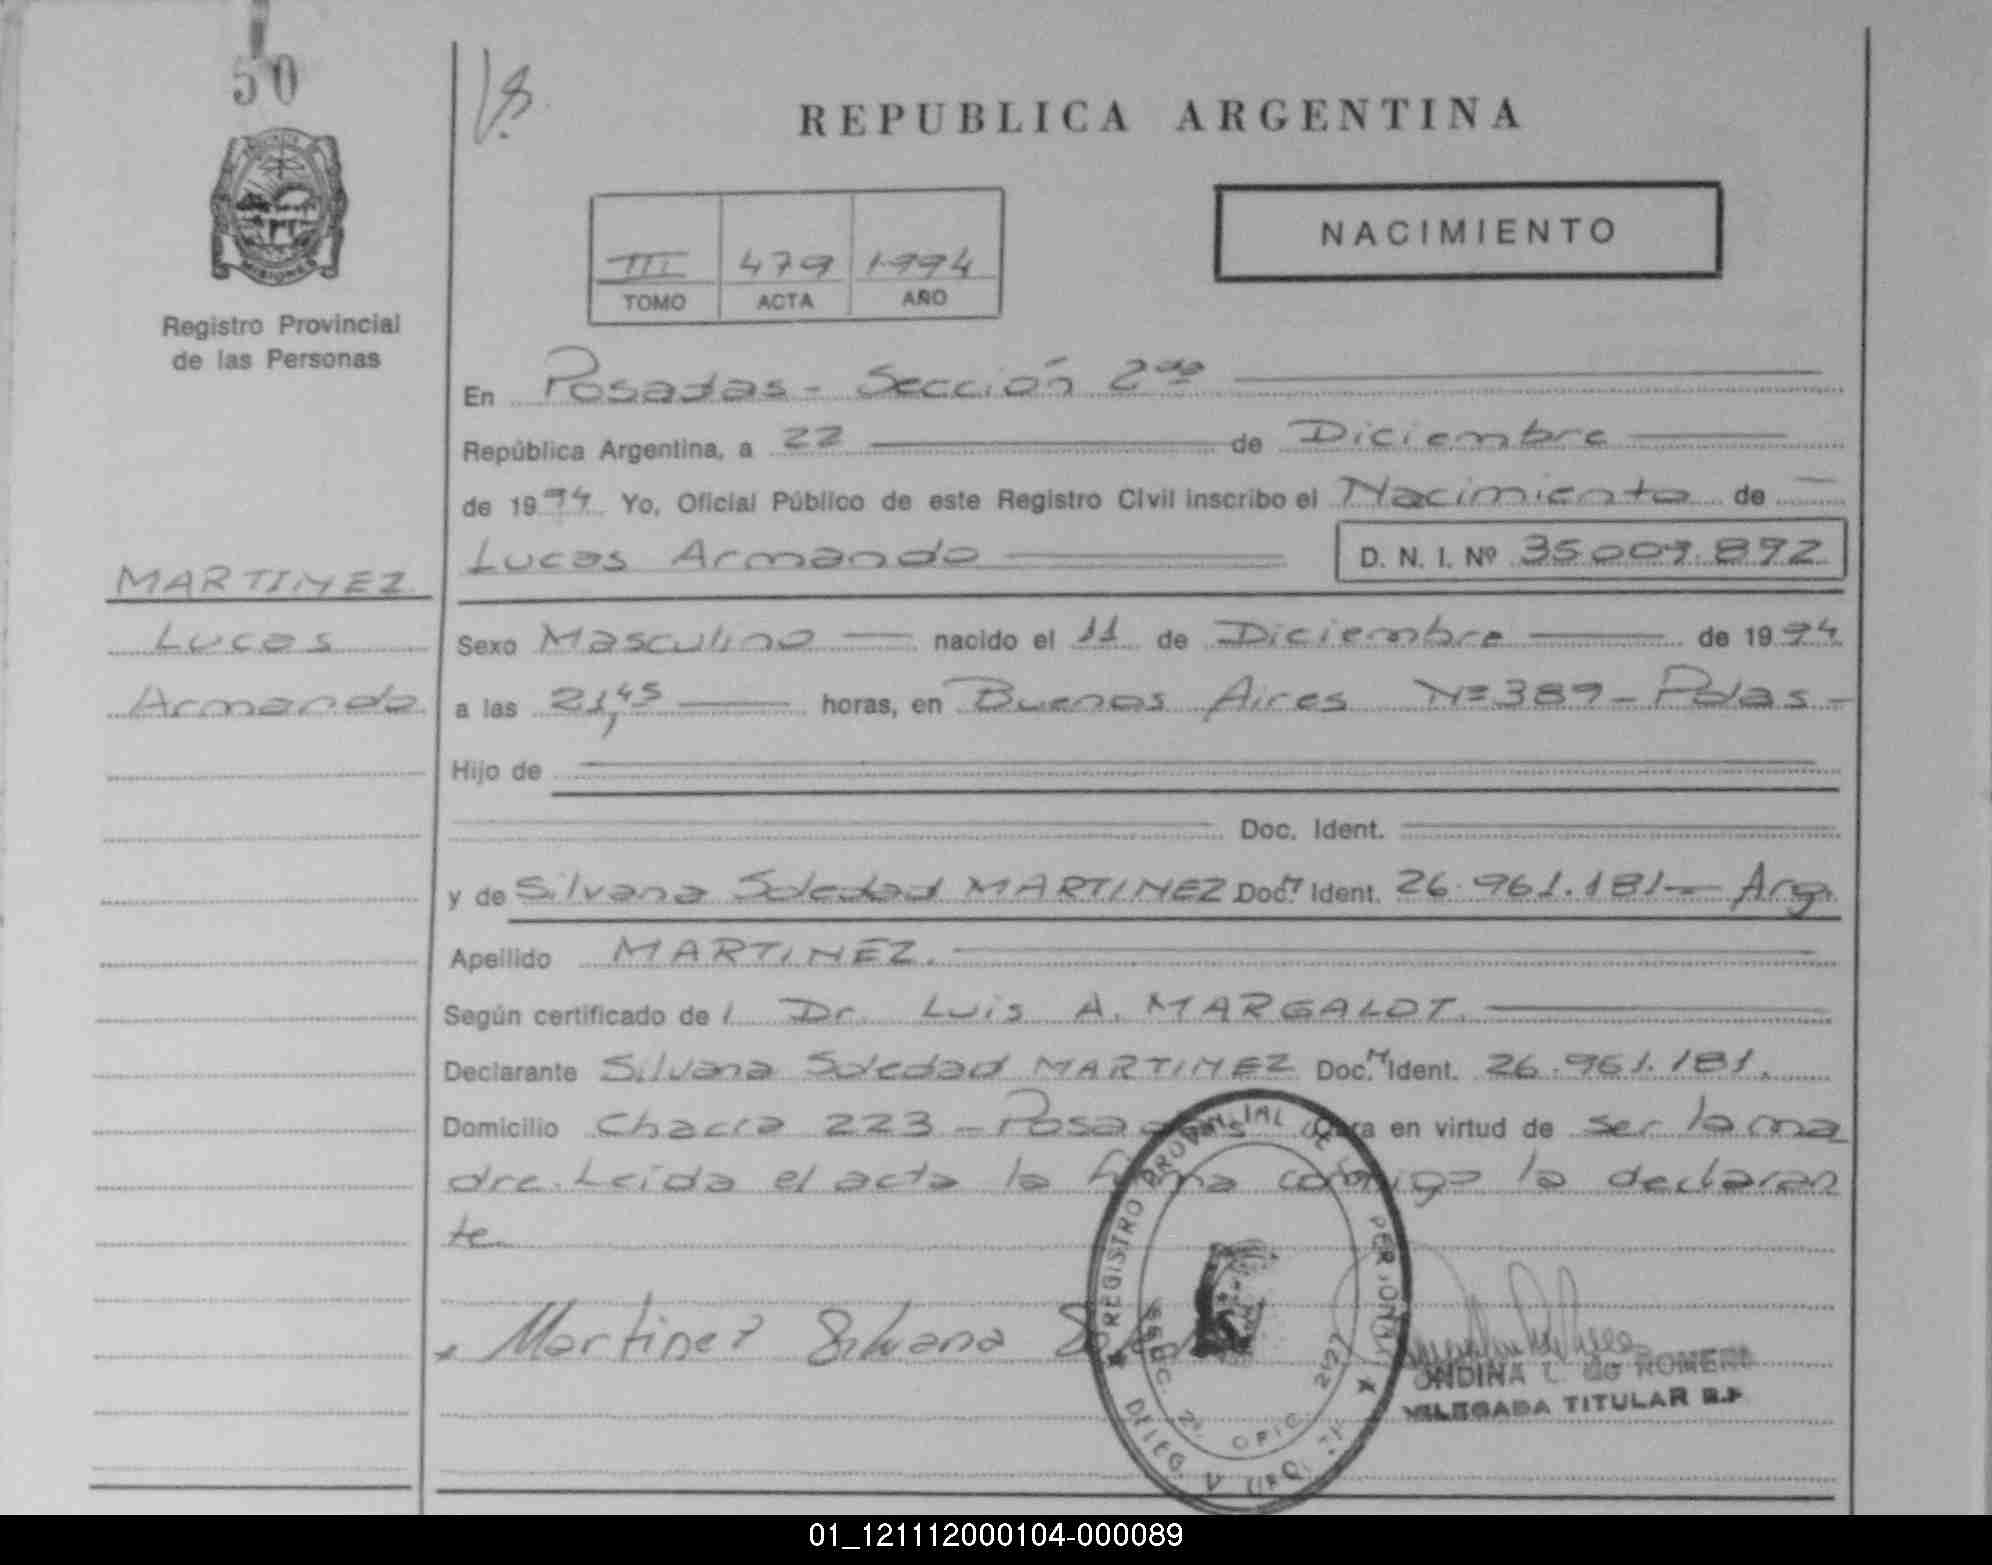 50
REPUBLICA ARGENTINA
NACIMIENTO
III 479 1994
TOMO ACTA AÑO
MISIONES
Registro Provincial
de las Personas
En Posadas - Sección 2da
República Argentina, a 22 de Diciembre
de 1994 Yo, Oficial Público de este Registro Civil inscribo el Nacimiento de
Lucas Armando D. N. I. Nº 35.009.892
MARTINEZ
Lucas
Armando
Sexo Masculino nacido el 11 de Diciembre de 1994
a las 21,45 horas, en Buenos Aires Nº 389 - Pdas -
Hijo de
Doc. Ident.
y de Silvana Soledad MARTINEZ Doc. Ident. 26.961.181 - Arg.
Apellido MARTINEZ.
Según certificado de l Dr. Luis A. MARGALOT.
Declarante Silvana Soledad MARTINEZ Doc. Ident. 26.961.181.
Domicilio Chacra 223 - Posadas Obra en virtud de ser la ma
dre. Leída el acta la firma conmigo la declaran
te.
Martinez Silvana
REGISTRO PROVINCIAL DE PERSONAS
SECC. 2º. OFIC. 2527
DELEG.
ONDINA L. de ROMERO
DELEGADA TITULAR R.P
01_121112000104-000089